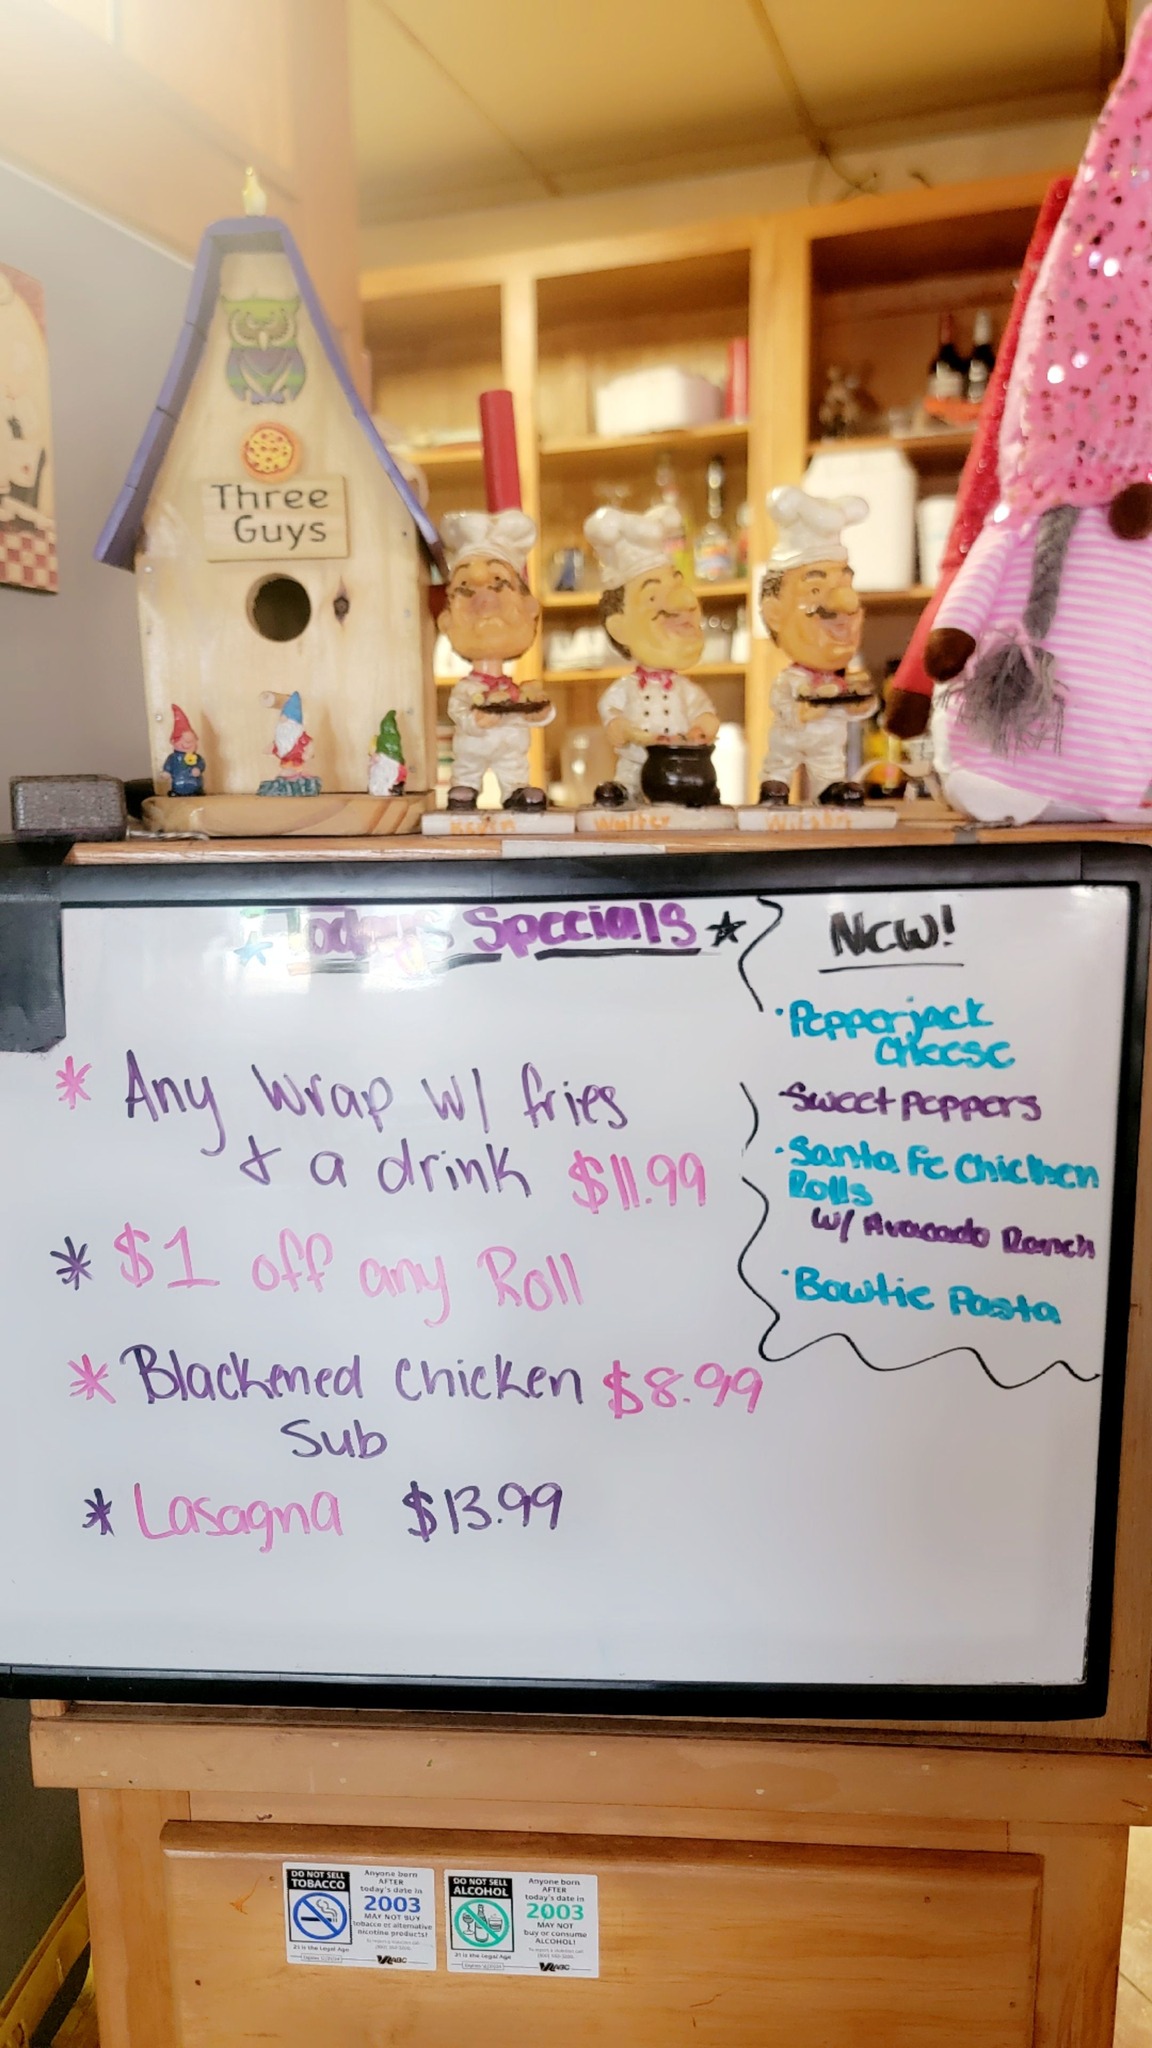 Three
Guys
Kevin
Walter
Todays Specials
* Any Wrap w/ fries
& a drink $11.99
* $1 off any Roll
* Blackened Chicken $8.99
Sub
* Lasagna $13.99
New!
· Pepperjack
Cheese
· Sweet Peppers
· Santa Fe Chicken
Rolls
w/ Avacado Ranch
· Bowtie Pasta
DO NOT SELL
TOBACCO
Anyone born
AFTER
today's date in
2003
MAY NOT BUY
tobacco or alternative
nicotine products!
21 is the Legal Age
ABC
DO NOT SELL
ALCOHOL
Anyone born
AFTER
today's date in
2003
MAY NOT
buy or consume
ALCOHOL!
21 is the Legal Age
ABC